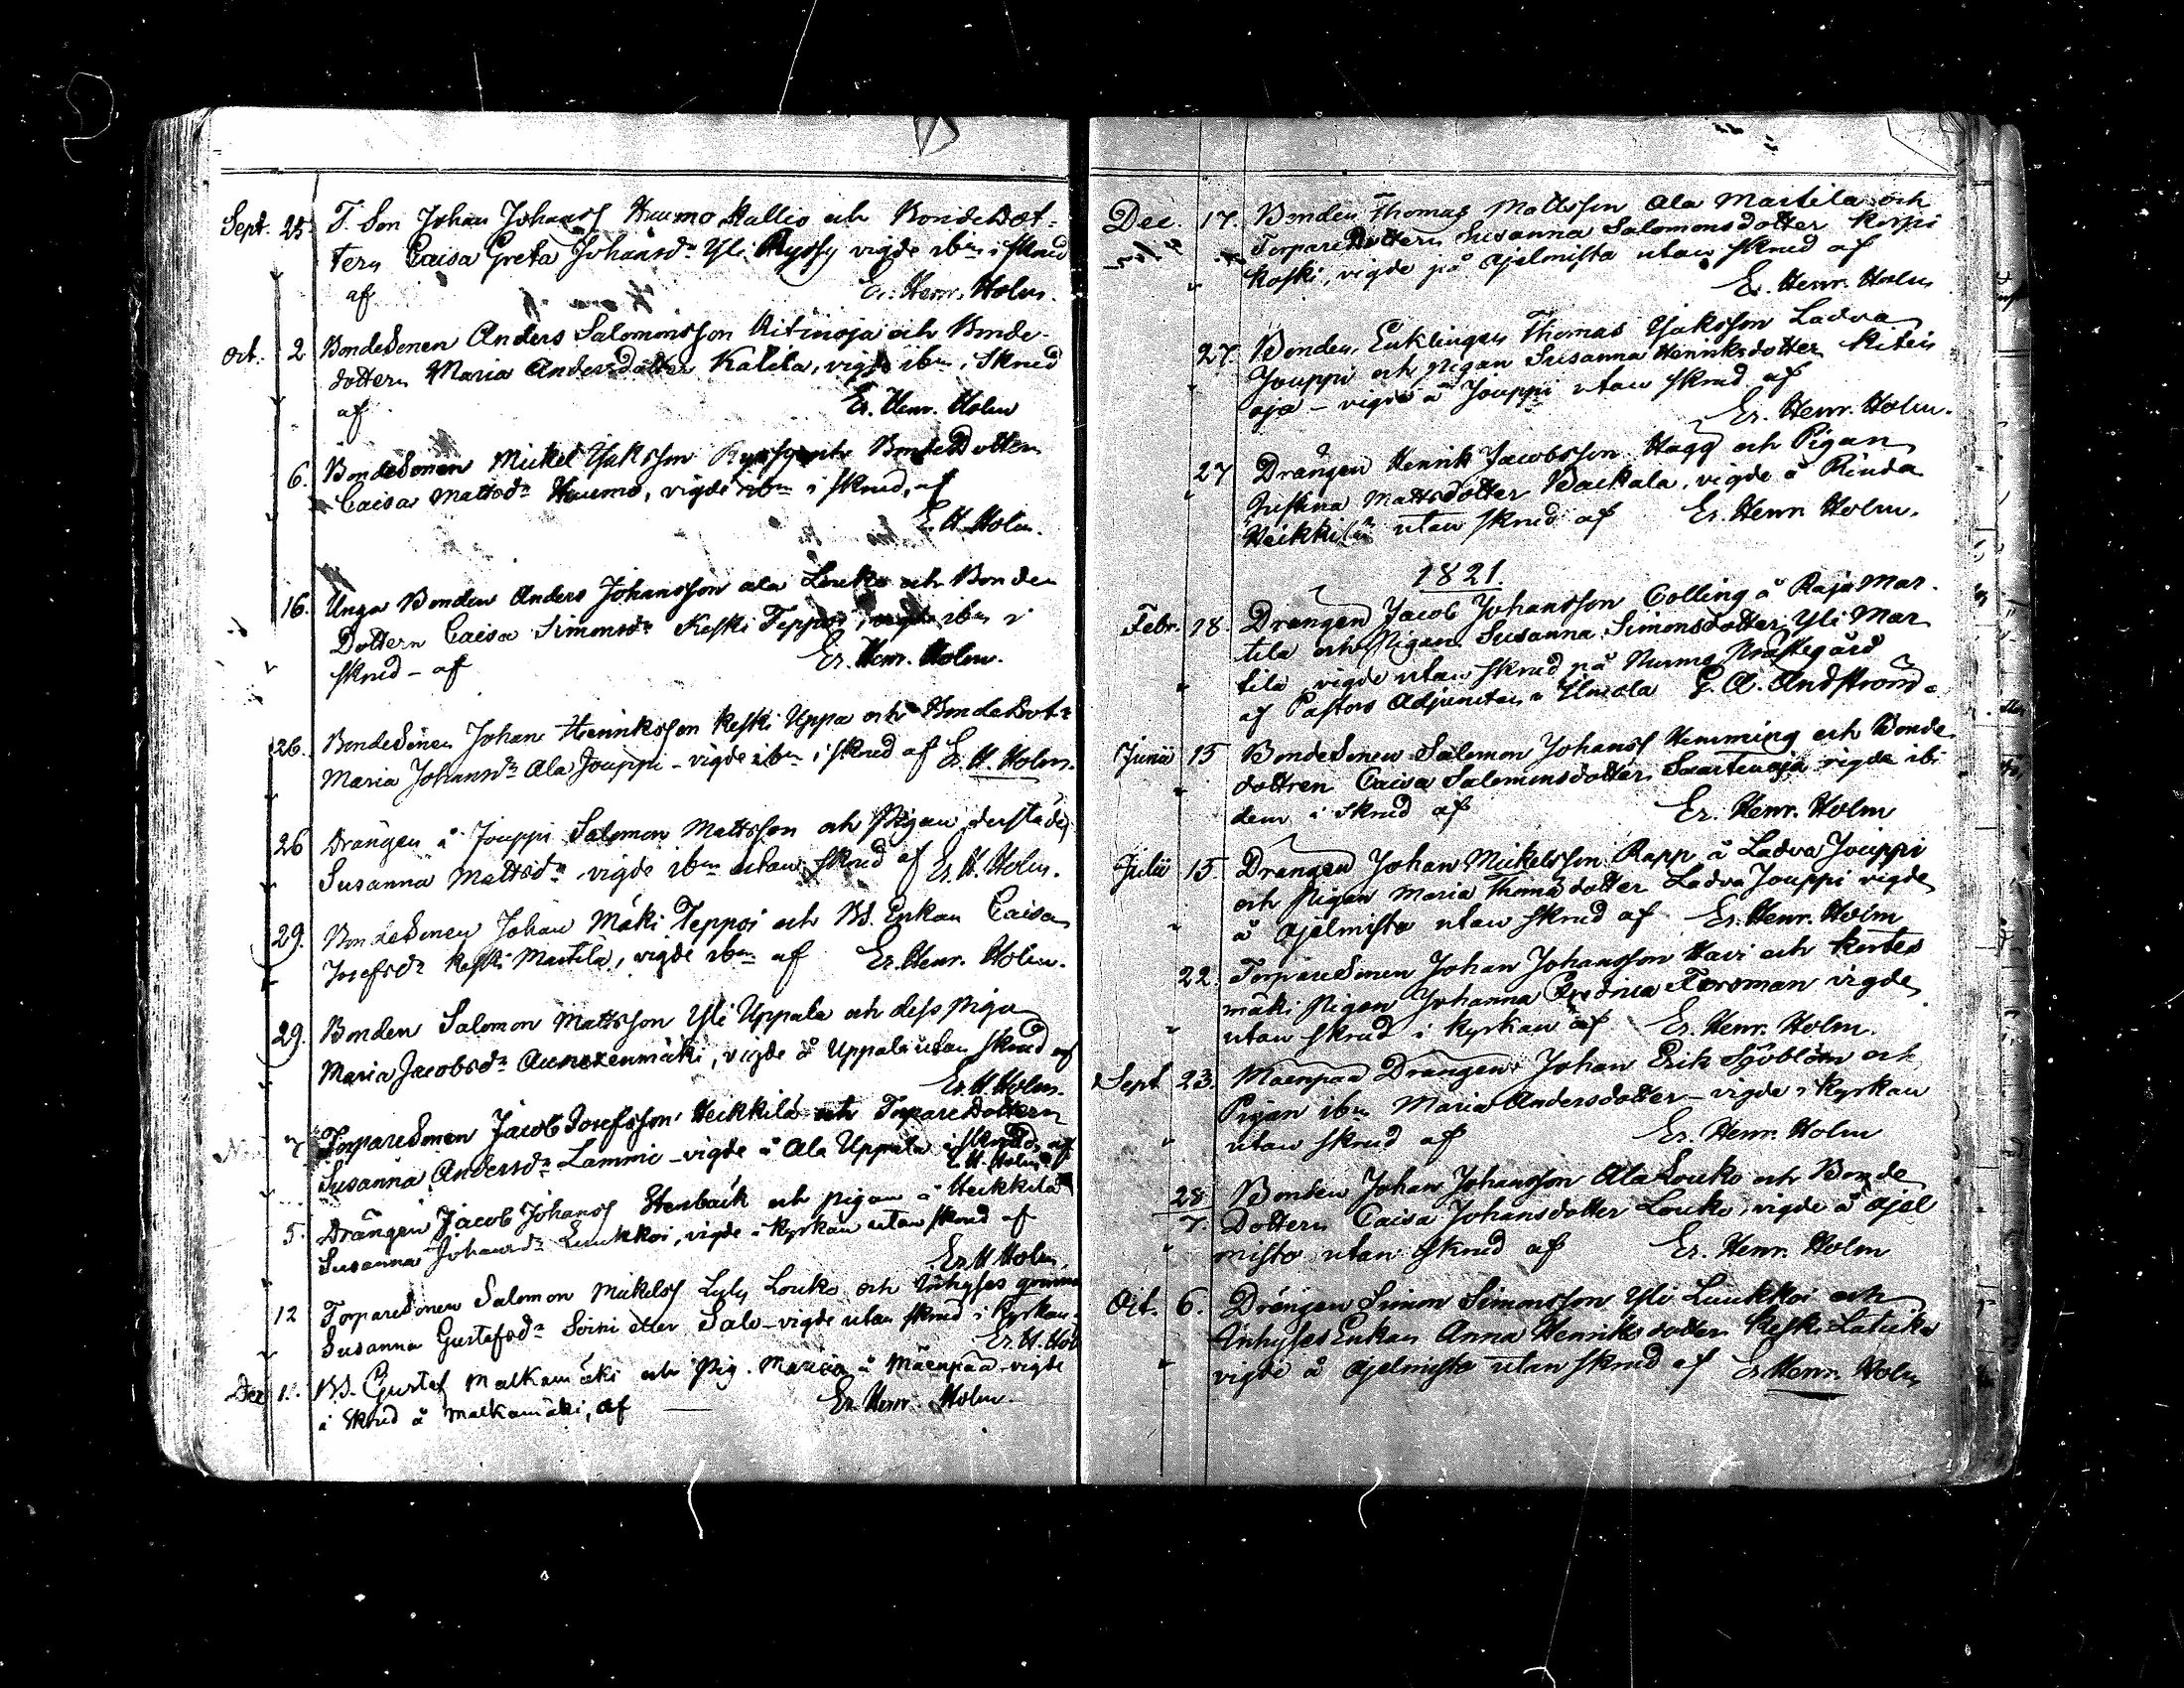 Sept. 25. T. Son Johan Johanss Haumo Kallio och Bondedot-
tern Caisa Greta Johansdr Yli Ryssy vigde ibm i skrud
af Er. Henr. Holm.
Oct. 2 BondeSonen Anders Salomonsson Kitinoja och Bonde-
dottern Maria Andersdotter Kalela, vigde ibm i Skrud
af Er. Henr. Holm
6. BondeSonen Mickel Isaksson Ryssy och BondeDottern
Caisa Mattsdr Haumo, vigde ibm i skrud, af
E. H. Holm.
16. Unga Bonden Anders Johansson ala Louko och Bonde
Dottern Caisa Simonsdr Keski Teppoi, vigde ibm i
skrud - af Er. Henr. Holm.
26. BondeSonen Johan Henriksson Keski Uppa och BondeDotr
Maria Johansdr Ala Jouppi - vigde ibm i skrud af Er. H. Holm.
26 Drängen å Jouppi Salomon Mattsson och Pigan derstädes
Susanna Mattsdr, vigde ibm utan skrud af Er. H. Holm.
29. BondeSonen Johan Mäki Teppoi och BS. Enkan Caisa
Josefsdr Keski Martila, vigde ibm af Er. Henr. Holm.
29. Bonden Salomon Mattsson Yli Uppala och dess Piga
Maria Jacobsdr, vigde å Uppala utan skrud af
Er. H. Holm.
7 TorpareSonen Jacob Josefsson Heikkilä och TorpareDottern
Susanna Andersdr Lammi - vigde å Ala Uppala i skrud af
E. H. Holm
5. Drängen Jacob Johanss Stenback och pigan å Heikkilä
Susanna Johansdr Luukkoi, vigde i kyrkan utan skrud af
Er. H. Holm.
12 TorpareSonen Salomon Mickelss Lyly Louko och Inhyses
Susanna Gustafsdr Soini eller Salo - vigde utan skrud i Kyrkan.
Er. H. Hol
Dec 1. BS. Gustaf Malkamäki och Pig. Maria å Mäenpää vigde
i Skrud å Malkamäki, af Er. Henr. Holm.
Dec. 17. Bonden Thomas Mattsson Ala Martila och
TorpareDottern Susanna Salomonsdotter Korpi
koski, vigde på Ajelmisto utan skrud af
Er. Henr. Holm
27. Bonden, Enklingen Thomas Isaksson Ladva
Jouppi och pigan Susanna Henriksdotter Kitin
oja - vigde å Jouppi utan skrud af
Er. Henr. Holm.
27 Drängen Henrik Jacobsson Hagg och Pigan
Justina Mattsdotter Backala, vigde å Rinda
Heikkilä utan skrud af Er. Henr. Holm.
1821.
Febr. 18. Drängen Jacob Johansson Colling å Raja Mar-
tila och Pigan Susanna Simonsdotter Yli Mar
tila vigde utan skrud på Nurmo Prästegård
af Pastors Adjuncten i Ilmola G. A. Andström.
Junii 15 BondeSonen Salomon Johanss Hemming och Bonde
dottren Caisa Salomonsdotter Saartenoja vigde ibi
dem i skrud af Er. Henr. Holm
Julii 15. Drängen Johan Mickelsson Rapp å Ladva Jouppi
och Pigan Maria Thomädotter Ladva Jouppi vigde
å Ajelmisto utan skrud af Er. Henr. Holm
22. TorpareSonen Johan Johansson Havi och Kertes
mäki Pigan Johanna Fredrica Forsman vigde
utan skrud i kyrkan af Er. Henr. Holm.
Sept 23. Mäenpää Drängen Johan Erik Sjöblom och
Pigan ibm Maria Andersdotter - vigde i kyrkan
utan skrud af Er. Henr. Holm
28/7. Bonden Johan Johansson Ala Louko och Bonde
Dottern Caisa Johansdotter Louko, vigde å Ajel
misto utan skrud af Er. Henr. Holm
Oct. 6. Drängen Simon Simonsson Yli Luukkoi och
InhysesEnkan Anna Henriksdotter Keski Latuka
vigde å Ajelmisto utan skrud af Er Henr. Holm